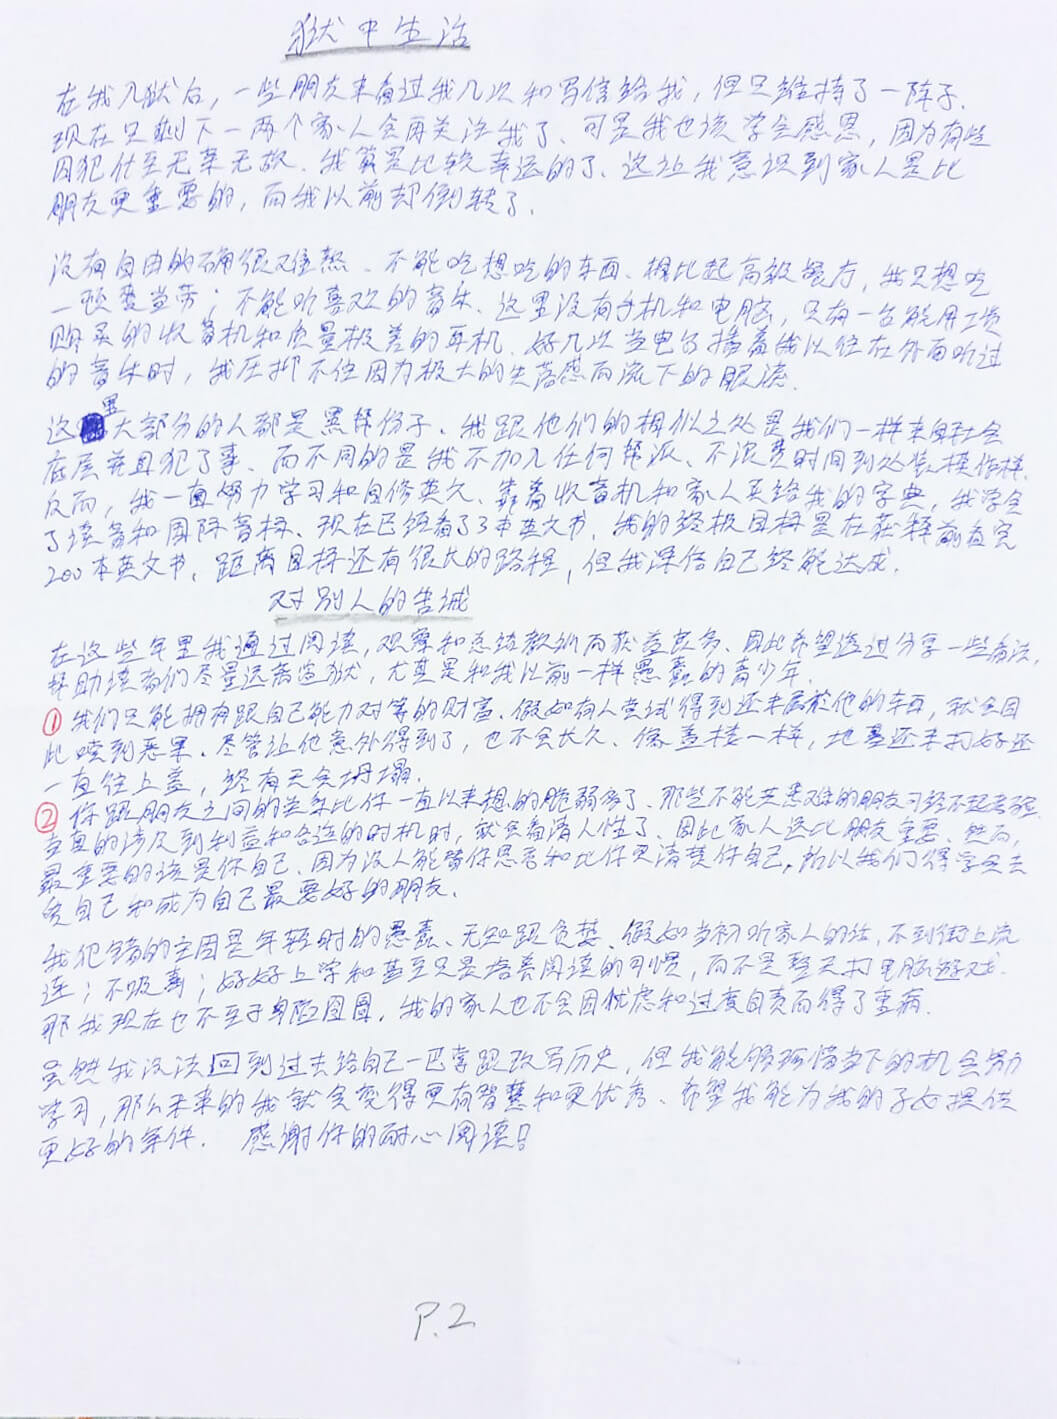 狱中生活
在我入狱后，一些朋友来看过我几次和写信给我，但只维持了一阵子.
现在只剩下一两个家人会再关注我了、可是我也该学会感恩，因为有些
囚犯什至无亲无故、我算是比较幸运的了、这让我意识到家人是比
朋友更重要的，而我以前却倒转了.
没有自由的确很难熬、不能吃想吃的东西、相比起高级餐厅，我只想吃
一顿麦当劳；不能听喜欢的音乐、这里没有手机和电脑，只有一台能用工资
购买的收音机和质量极差的耳机、好几次当电台播着我以往在外面听过
的音乐时，我压抑不住因为极大的失落感而流下的眼泪.
这里大部分的人都是黑帮份子、我跟他们的相似之处是我们一样来自社会
底层并且犯了事、而不同的是我不加入任何帮派、不浪费时间到处装模作样.
反而，我一直努力学习和自修英文、靠着收音机和家人买给我的字典，我学会
了读音和国际音标、现在已经看了3本英文书，我的终极目标是在获释前看完
200本英文书、距离目标还有很长的路程，但我深信自己终能达成.
对别人的告诫
在这些年里我通过阅读，观察和总结教训而获益良多、因此希望透过分享一些看法，
帮助读者们尽量远离监狱，尤其是和我以前一样愚蠢的青少年.
① 我们只能拥有跟自己能力对等的财富、假如有人尝试得到还未属於他的东西，就会因
此噎到恶果、尽管让他意外得到了，也不会长久、像盖楼一样，地基还未打好还
一直往上盖，终有天会坍塌.
② 你跟朋友之间的关系比你一直以来想的脆弱多了、那些不能共患难的朋友可经不起考验.
当真的涉及到利益和合适的时机时，就会看清人性了、因此家人远比朋友重要、然而，
最重要的该是你自己、因为没人能替你思考和比你更清楚你自己，所以我们得学会去
爱自己和成为自己最要好的朋友.
我犯错的主因是年轻时的愚蠢、无知跟贪婪、假如当初听家人的话，不到街上流
连；不吸毒；好好上学和甚至只是培养阅读的习惯，而不是整天打电脑游戏.
那我现在也不至于身陷囹圄，我的家人也不会因忧虑和过度自责而得了重病.
虽然我没法回到过去给自己一巴掌跟改写历史，但我能够珍惜当下的机会努力
学习，那么未来的我就会变得更有智慧和更优秀、希望我能为我的子女提供
更好的条件. 感谢你的耐心阅读！
P.2